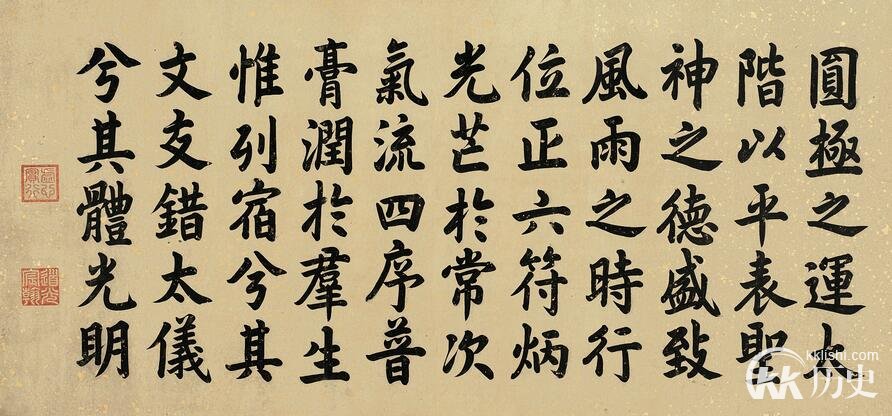 圓極之運太
階以平表聖
神之德盛致
風雨之時行
位正六符炳
光芒於常次
氣流四序普
膏潤於羣生
惟列宿兮其
文錯太儀
兮其體光明
道光宸翰
kklishi.com
KK历史